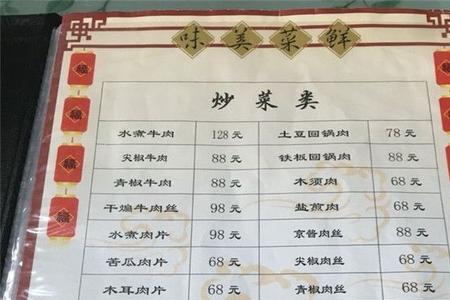 味美菜鲜
炒菜类
水煮牛肉 128元 土豆回锅肉 78元
尖椒牛肉 88元 铁板回锅肉 88元
青椒牛肉 88元 木须肉 68元
干煸牛肉丝 98元 盐煎肉 68元
水煮肉片 98元 京酱肉丝 88元
苦瓜肉片 68元 尖椒肉丝 68元
木耳肉片 68元 青椒肉丝 68元